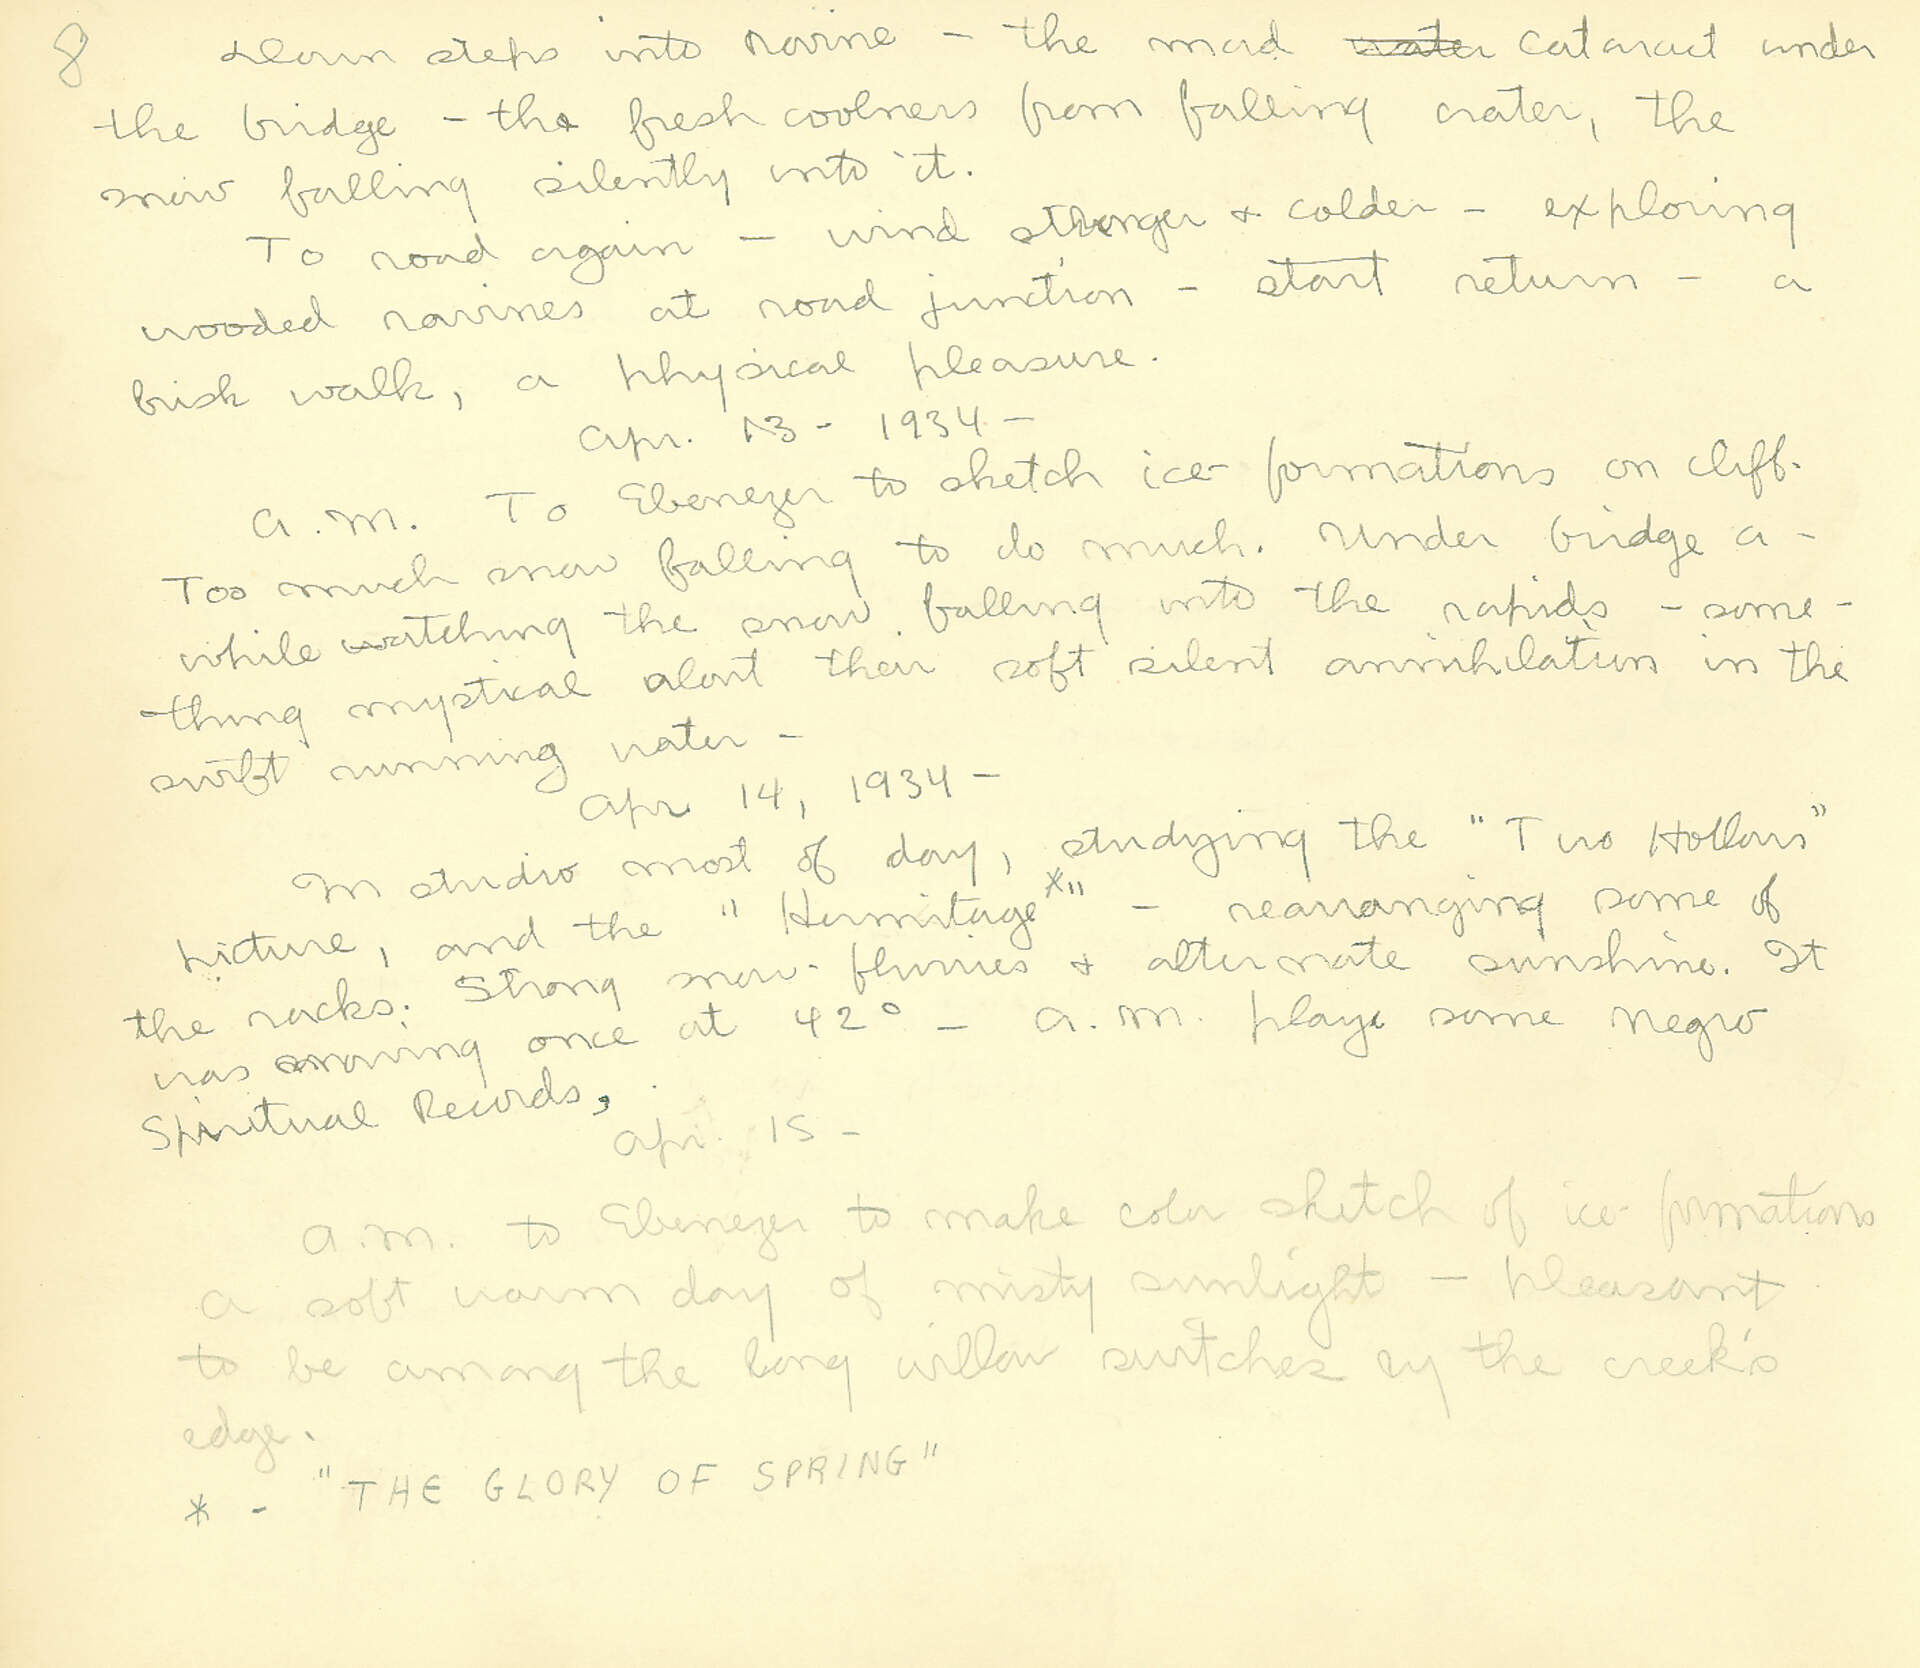 8 Down steps into ravine – the mad water cataract under
the bridge – the fresh coolness from falling water, the
snow falling silently into it.
To road again – wind stronger & colder – exploring
wooded ravines at road junction – start return – a
brisk walk, a physical pleasure.
Apr. 13 – 1934 –
A.M. To Ebenezer to sketch ice formations on cliff.
Too much snow falling to do much. Under bridge a-
while watching the snow falling into the rapids – some-
thing mystical about their soft silent annihilation in the
swift running water –
Apr 14, 1934 –
In studio most of day, studying the "Two Hollows"
picture, and the "Hermitage*" – rearranging some of
the rocks. Strong snow-flurries & alternate sunshine. It
was snowing once at 42° – A.M. play some Negro
Spiritual Records,
Apr. 15 –
A.M. to Ebenezer to make color sketch of ice formations
A soft warm day of misty sunlight – pleasant
to be among the long willow switches by the creek's
edge.
* - "THE GLORY OF SPRING"